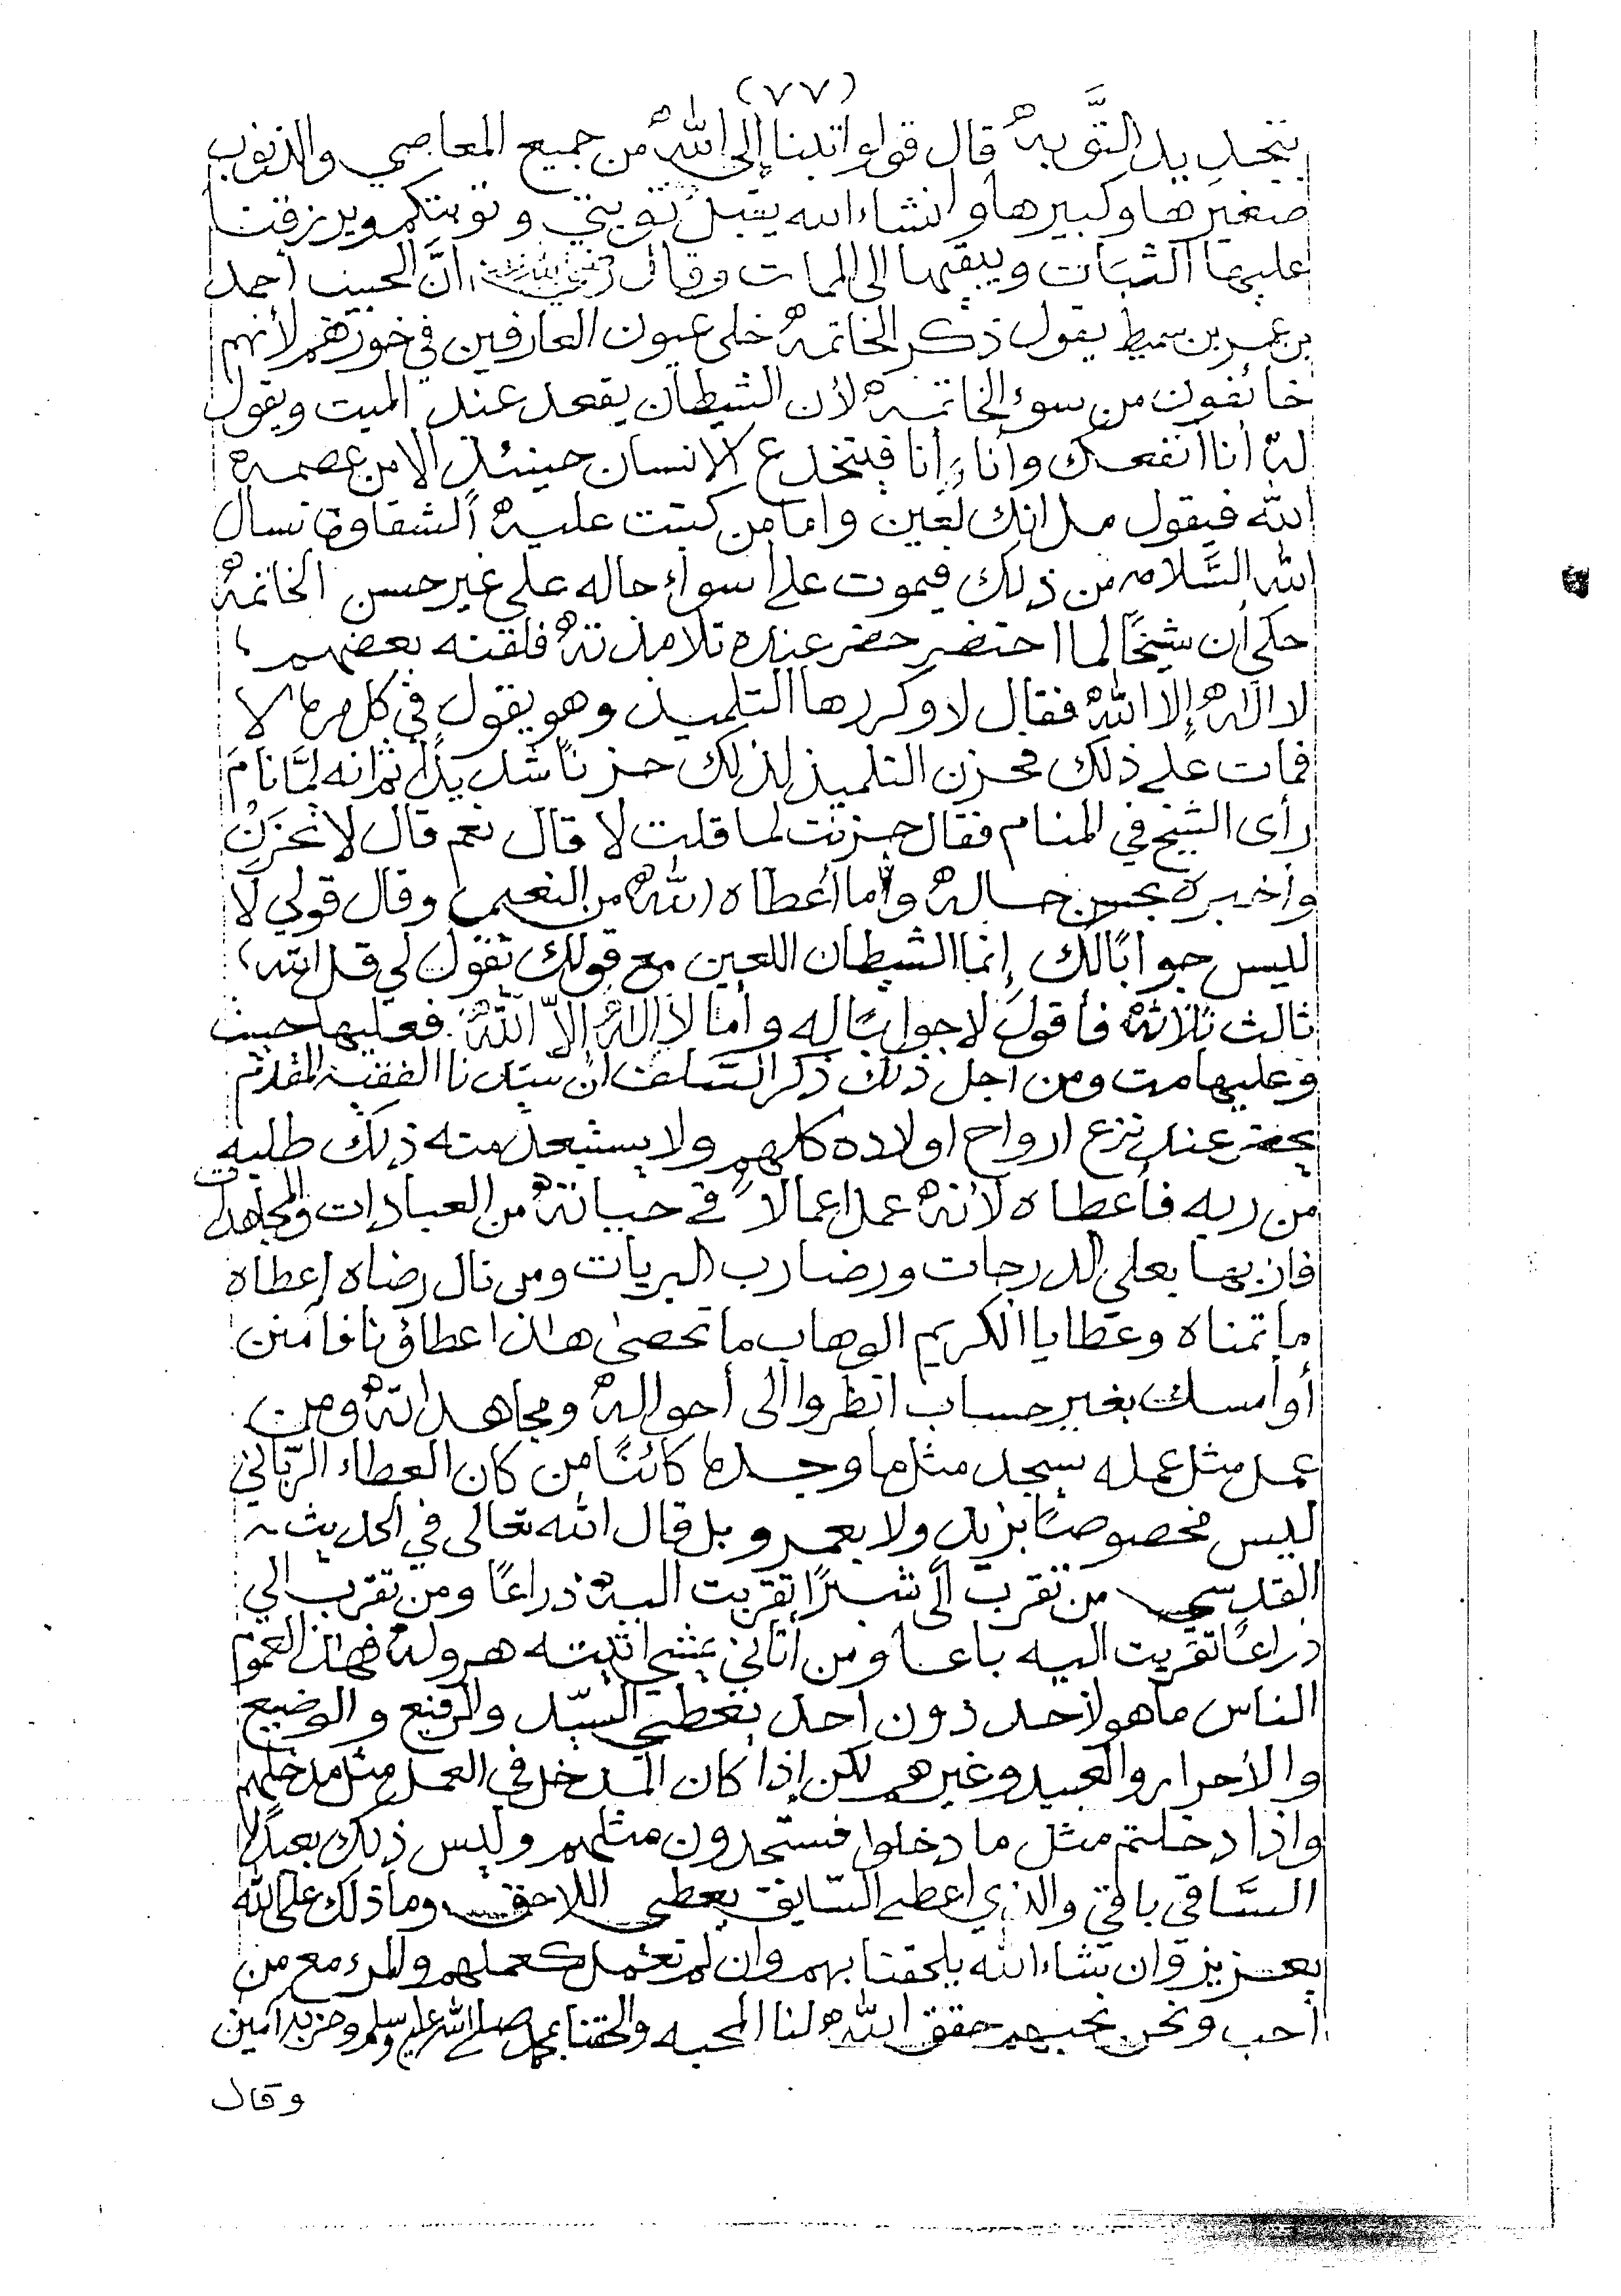 (٧٧)
بتجديد التَّوبه قال قولوا تبنا إلى الله من جميع المعاصي والذنوب
صغيرها وكبيرها وانشاء الله يقبل توبتي وتوبتكم ويرزقنا
عليها الثبات ويبقيها الى الممات وقال رضي الله عنه انَّ الحبيب احمد
بن عمر بن سميط يقول ذكر الخاتمه خلى عيون العارفين في لأنهم
خائفون من سوء الخاتمه لأن الشيطان يقعد عند الميت ويقول
له أنا أنفعك وأنا وأنا فينخدع الانسان حينئذ الا من عصمه
الله فيقول انك لعين واما من كتبت عليه الشقاوة نسال
الله السَّلامه من ذلك فيموت على اسواء حاله على غير حسن الخاتمه
حكي أن شيخًا لما احتضر حضر عنده تلامذته فلقنه بعضهم،
لا اله إلا الله فقال لا وكررها التلميذ وهو يقول في كل مرة لا
فمات على ذلك فحزن التلميذ لذلك حزنًا شديدًا ثم انه لمَّا نامَ
رأى الشيخ في المنام فقال حزنت لما قلت لا قال نعم قال لا تحزَنْ
وأخبره بحسن حاله وما أعطاه الله من النعيم وقال قولي لا
ليس جوابًا لك إنما الشيطان اللعين مع قولك يقول لي قل الله،
ثالث ثلاثه فأقول لا جوابًا له وأما لا إله إلاّ اللهُ فعليها حييت
وعليها مت ومن اجل ذلك ذكر السلف ان سيدنا الفقيه المقدم
يحضر عند نزع ارواح اولاده كلهم ولا يستبعد منه ذلك طلبه
من ربه فأعطاه لأنه عمل اعمالاً في حياته من العبادات والمجاهدات
فاز بها بعلي الدرجات ورضا رب البريات ومن نال رضاه اعطاه
ما تمناه وعطايا الكريم الوهاب ما تحصى هذا عطاؤنا فامنن
أو أمسك بغير حساب انظروا الى أحواله ومجاهداته ومن
عمل مثل عمله سيجد مثل ما وجده كائنًا من كان العطاء الربّاني
ليس مخصوصًا بزيد ولا بعمرو بل قال الله تعالى في الحديث
القدسي من تقرب الى شبرًا تقربت اليه ذراعًا ومن تقرب الي
ذراعًا تقربت اليه باعا ومن أتاني يمشي اتيته هروله فهذا لعموم
الناس ماهو لأحد دون احد يعطي السيّد والرفيع والوضيع
والأحرار والعبيد وغيرهم لكن إذا كان المدخل في العمل مثل مدخلهم
واذا دخلتم مثل ما دخلوا فستجدون مثلهم وليس ذلك بعيدًا
السَّاقي باقي والذي اعطى السّابق يعطي اللاحق وما ذلك على الله
بعزيز وان شاء الله يلحقنا بهم وان لم نعمل كعملهم والمرء مع من
أحب ونحن نحبهم حقق الله لنا المحبه والحقنا بمحمد صلى الله عليه وسلم وحزبه آمين
وقال